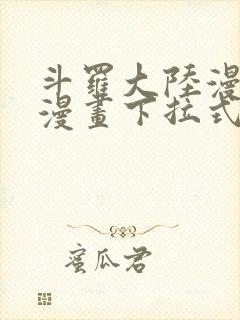 斗羅大陸漫
漫畫下拉式
蜜瓜君